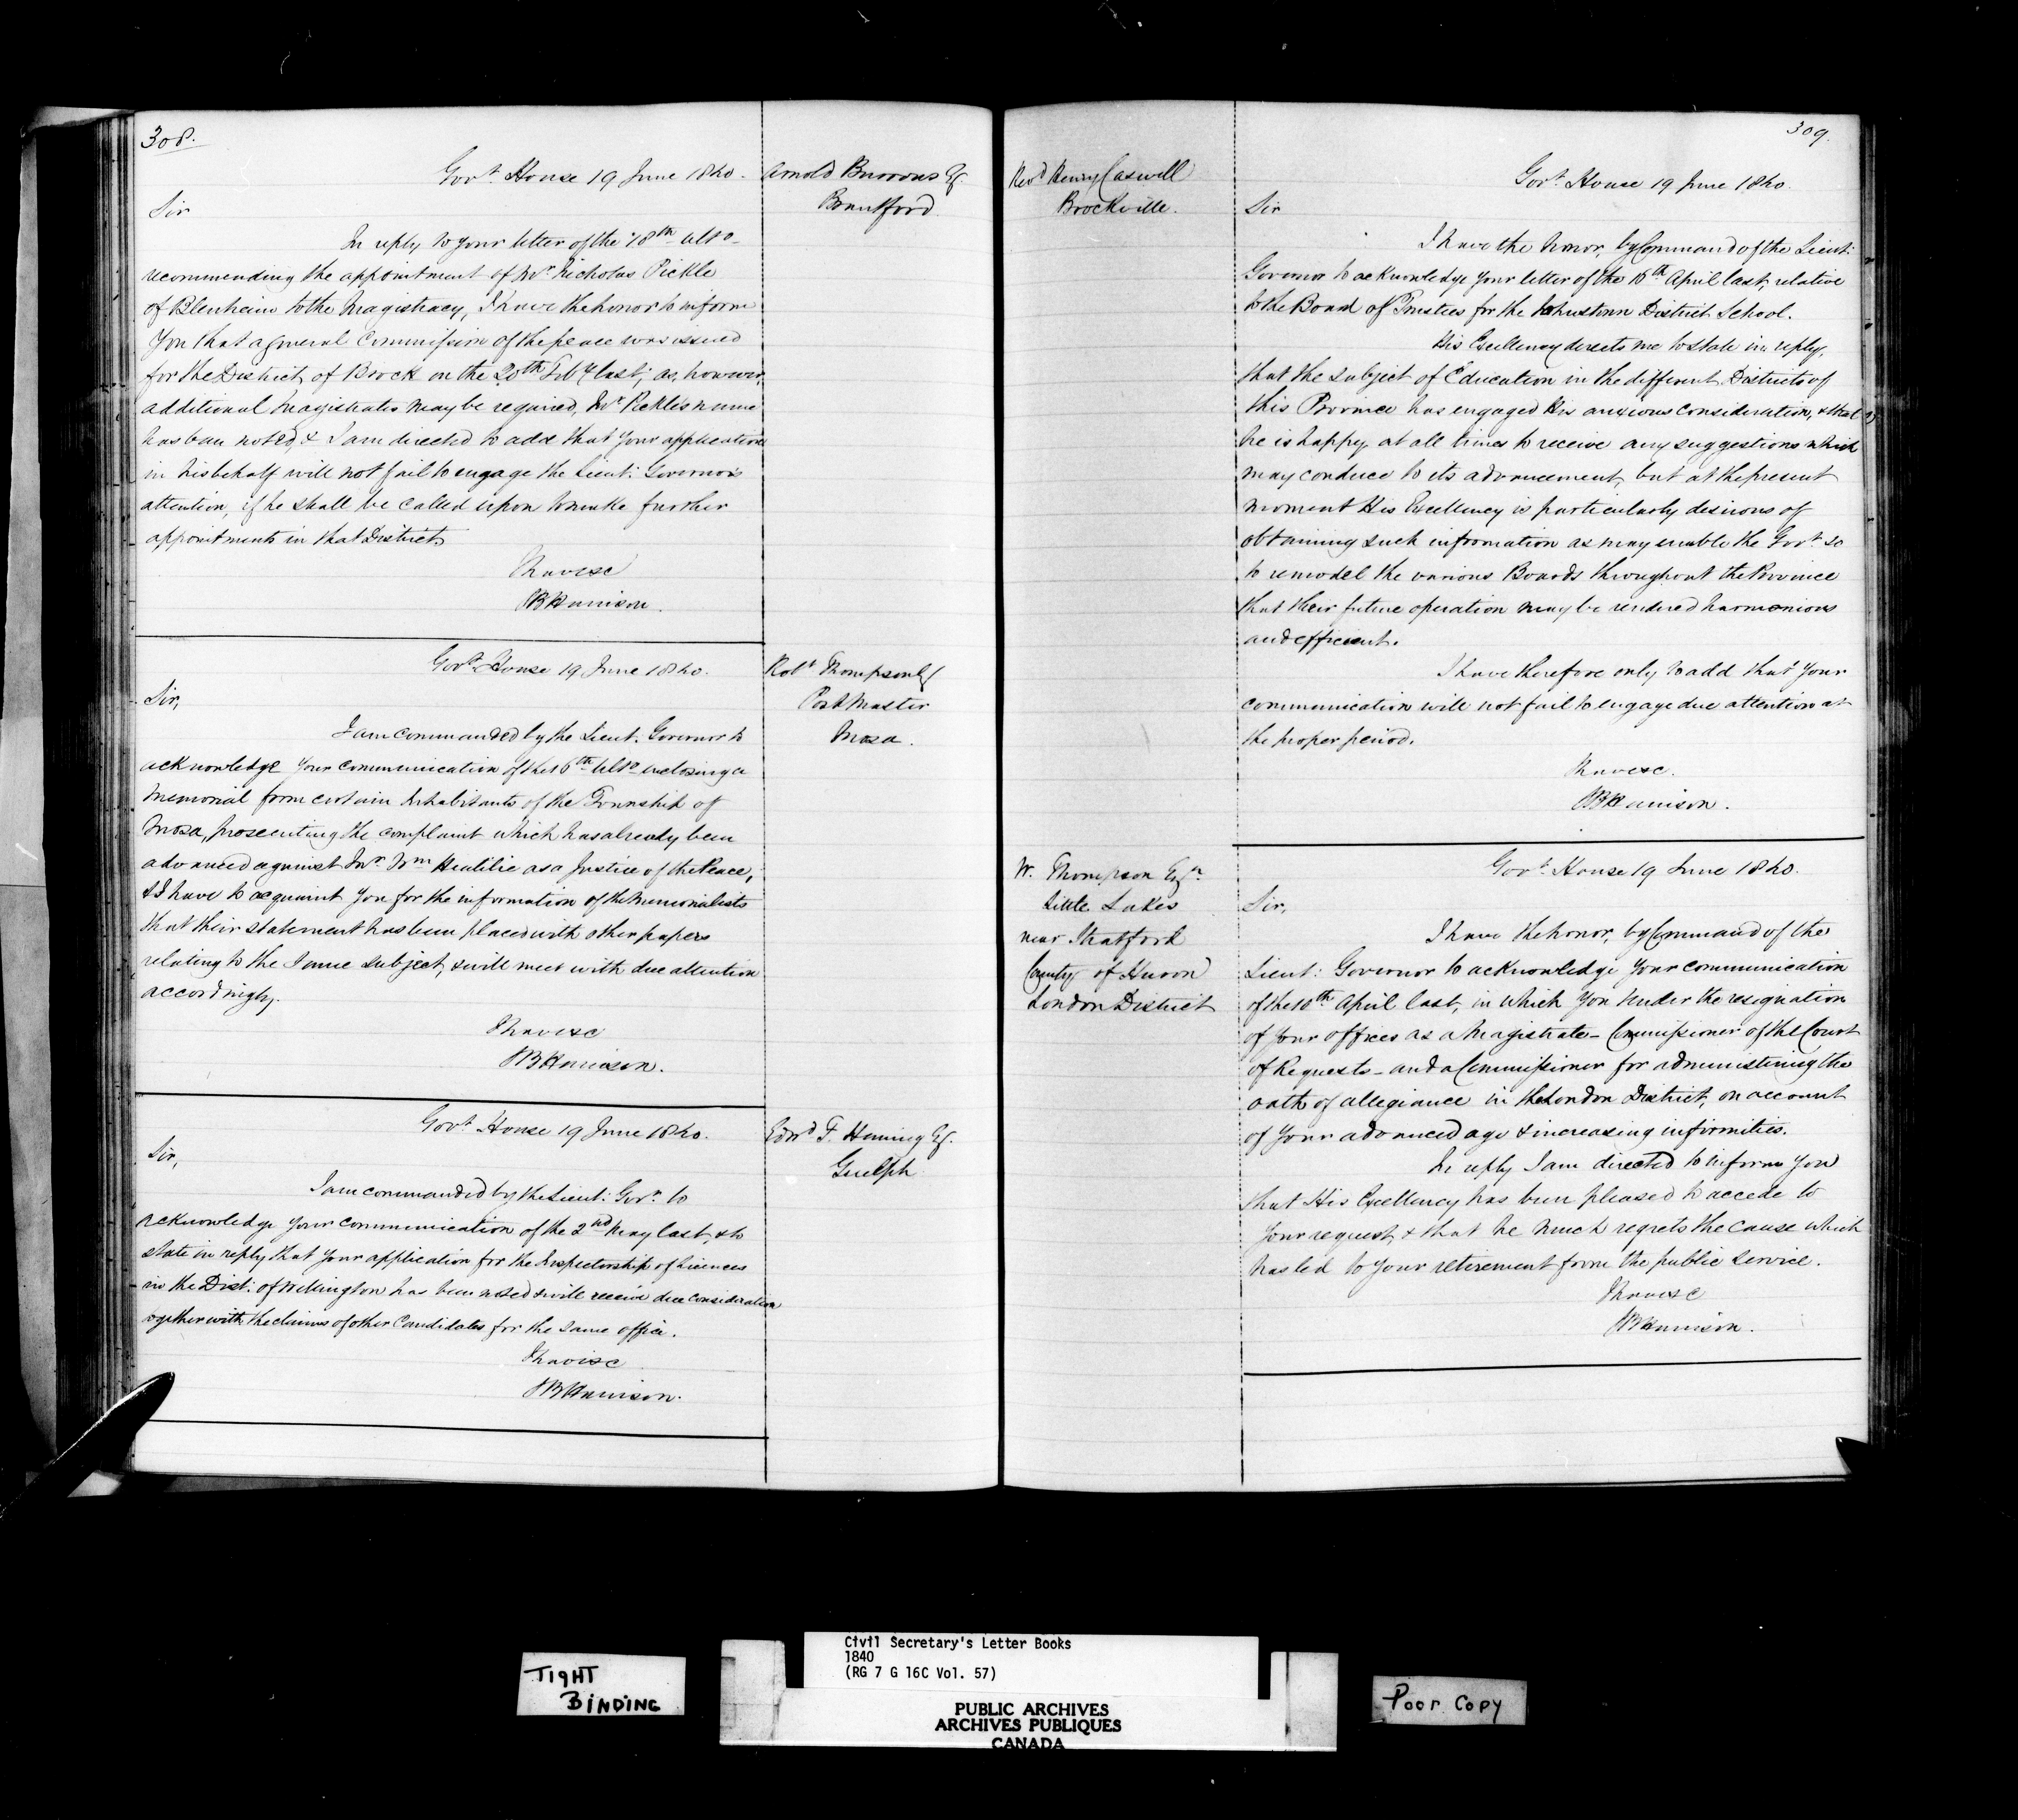 308.
Govt. House 19 June 1840.
Arnold Burrows Esq.
Brantford.
Sir
In reply to your letter of the 18th ulto
recommending the appointment of Mr. Nicholas Pickle
of Blenheim to the Magistracy, I have the honor to inform
you that a general Commission of the peace was issued
for the District of Brock on the 20th Feby last; as, however,
additional Magistrates may be required, Mr. Pickle's name
has been noted, & I am directed to add that your application
in his behalf will not fail to engage the Lieut: Governor's
attention, if he shall be called upon to make further
appointments in that District.
I have &c
SB Harrison.
Govt. House 19 June 1840.
Robt Thompson Esq
Post Master
Mosa.
Sir,
I am commanded by the Lieut. Governor to
acknowledge your communication of the 16th Ulto enclosing a
Memorial from certain Inhabitants of the Township of
Mosa, prosecuting the complaint which has already been
advanced against Mr. Wm as a Justice of the Peace,
& I have to acquaint you for the information of the Memorialists
that their statement has been placed with other papers
relating to the same subject, & will meet with due attention
accordingly.
I have &c
SB Harrison.
Govt. House 19 June 1840.
Edwd F. Heming Esq.
Guelph
Sir,
I am commanded by the Lieut: Govr. to
acknowledge your communication of the 2nd May last, & to
state in reply that your application for the Inspectorship of Licences
in the Dist: of Wellington has been noted & will receive due consideration
together with the claims of other Candidates for the same office.
I have &c
SB Harrison.
309.
Revd Henry Caswell
Brockville.
Govt. House 19 June 1840.
Sir
I have the honor, by Command of the Lieut:
Governor to acknowledge your letter of the 16th April last, relative
to the Board of Trustees for the Johnstown District School.
His Excellency directs me to state in reply,
that the subject of Education in the different Districts of
this Province has engaged his anxious consideration, & that
he is happy at all times to receive any suggestions which
may conduce to its advancement, but at the present
moment His Excellency is particularly desirous of
obtaining such information as may enable the Govt. so
to remodel the various Boards throughout the Province
that their future operation may be rendered harmonious
and efficient.
I have therefore only to add that your
communication will not fail to engage due attention at
the proper period.
I have &c.
SB Harrison.
W. Thompson Esqr
Little Lakes
near Stratford
County of Huron
London District
Govt. House 19 June 1840.
Sir,
I have the honor, by Command of the
Lieut: Governor to acknowledge your communication
of the 10th April last, in which you tender the resignation
of your offices as a Magistrate – Commissioner of the Court
of Requests – and a Commissioner for administering the
oath of allegiance in the London District, on account
of your advanced age & increasing infirmities.
In reply I am directed to inform you
that His Excellency has been pleased to accede to
your request, & that he much regrets the cause which
has led to your retirement from the public service.
I have &c
SB Harrison.
TIGHT
BINDING
Civil Secretary's Letter Books
1840
(RG 7 G 16C Vol. 57)
PUBLIC ARCHIVES
ARCHIVES PUBLIQUES
CANADA
Poor Copy